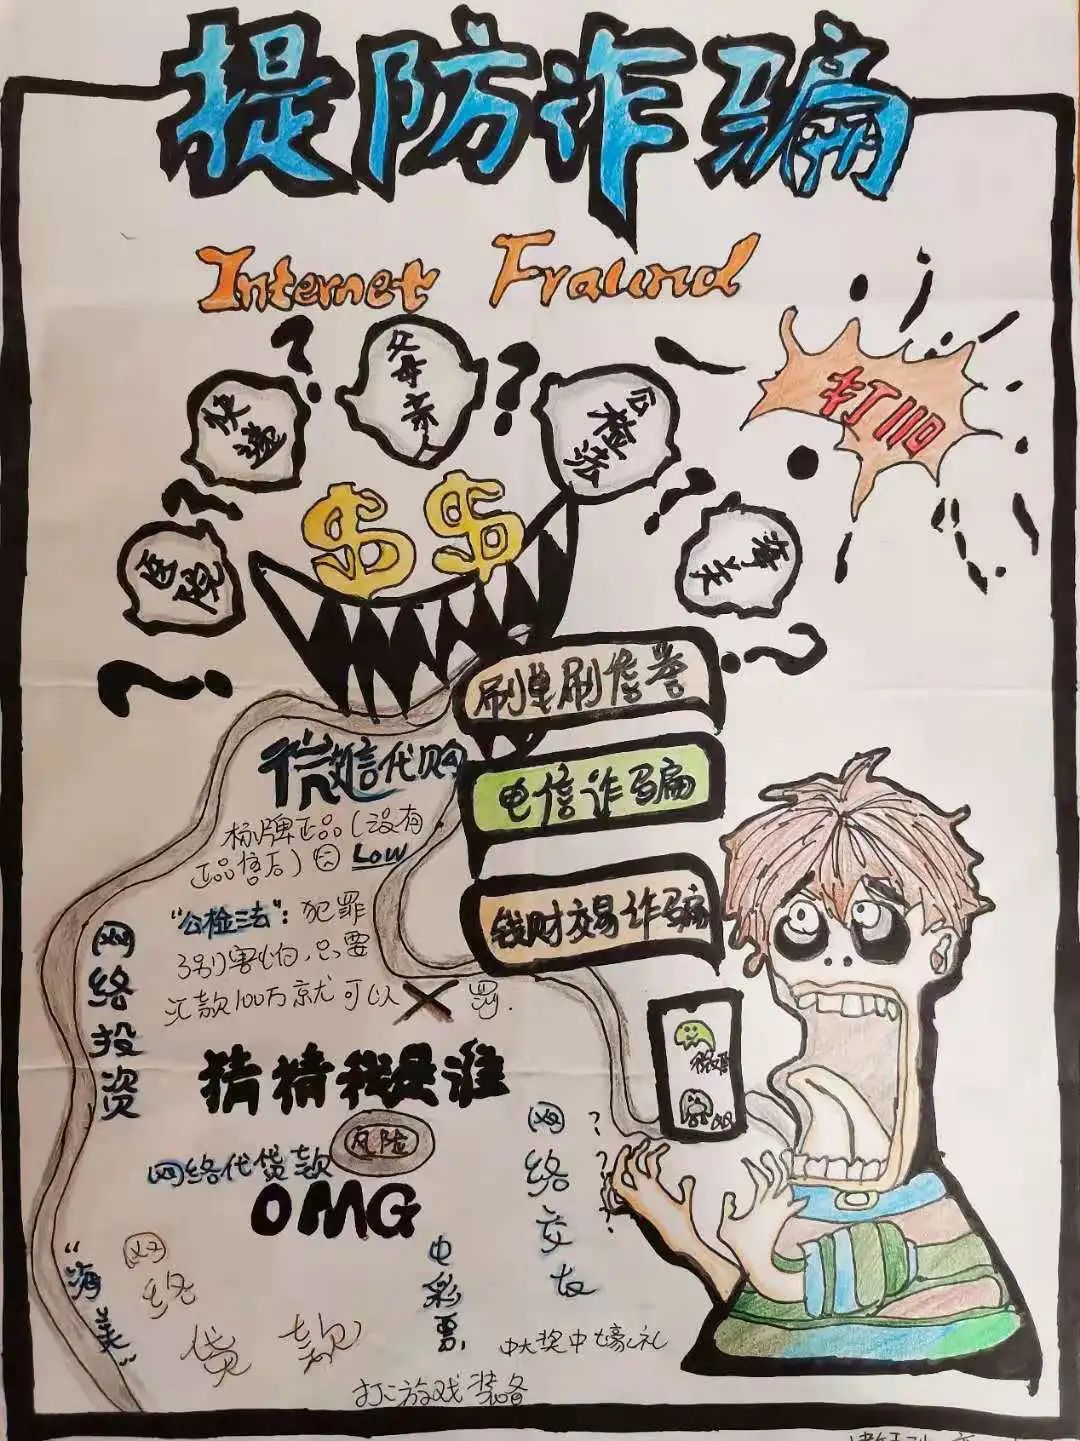 提防诈骗
Internet Fraund
打110
父母亲人
快递
公检法
医院
海关
刷单刷信誉
微信代购
电信诈骗
标牌正品(没有
正品售后) LOW
钱财交易诈骗
"公检法":犯罪
别害怕,只要
汇款100万就可以 X 罪.
网络投资
微信
QQ
猜猜我是谁
网络代贷款 风险
OMG
网络交友
? ? ? ?
网络贷款
中彩票,
中大奖中壕礼
打游戏装备